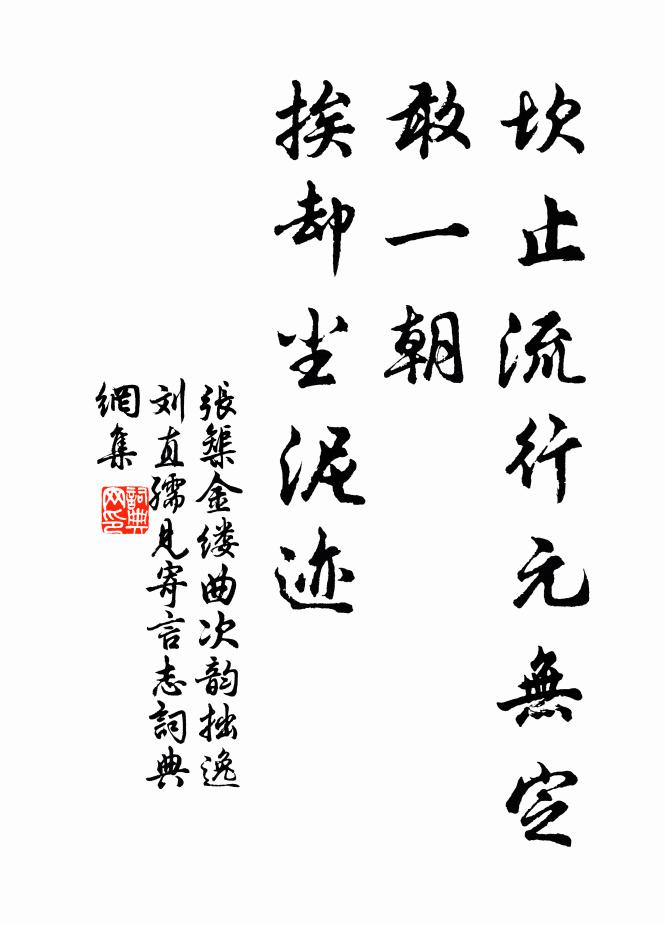 坎止流行元無定
敢一朝
挨却尘泥迹
張榘金缕曲次韵拙逸
刘直孺見寄言志詞典
網集
詞典
网印